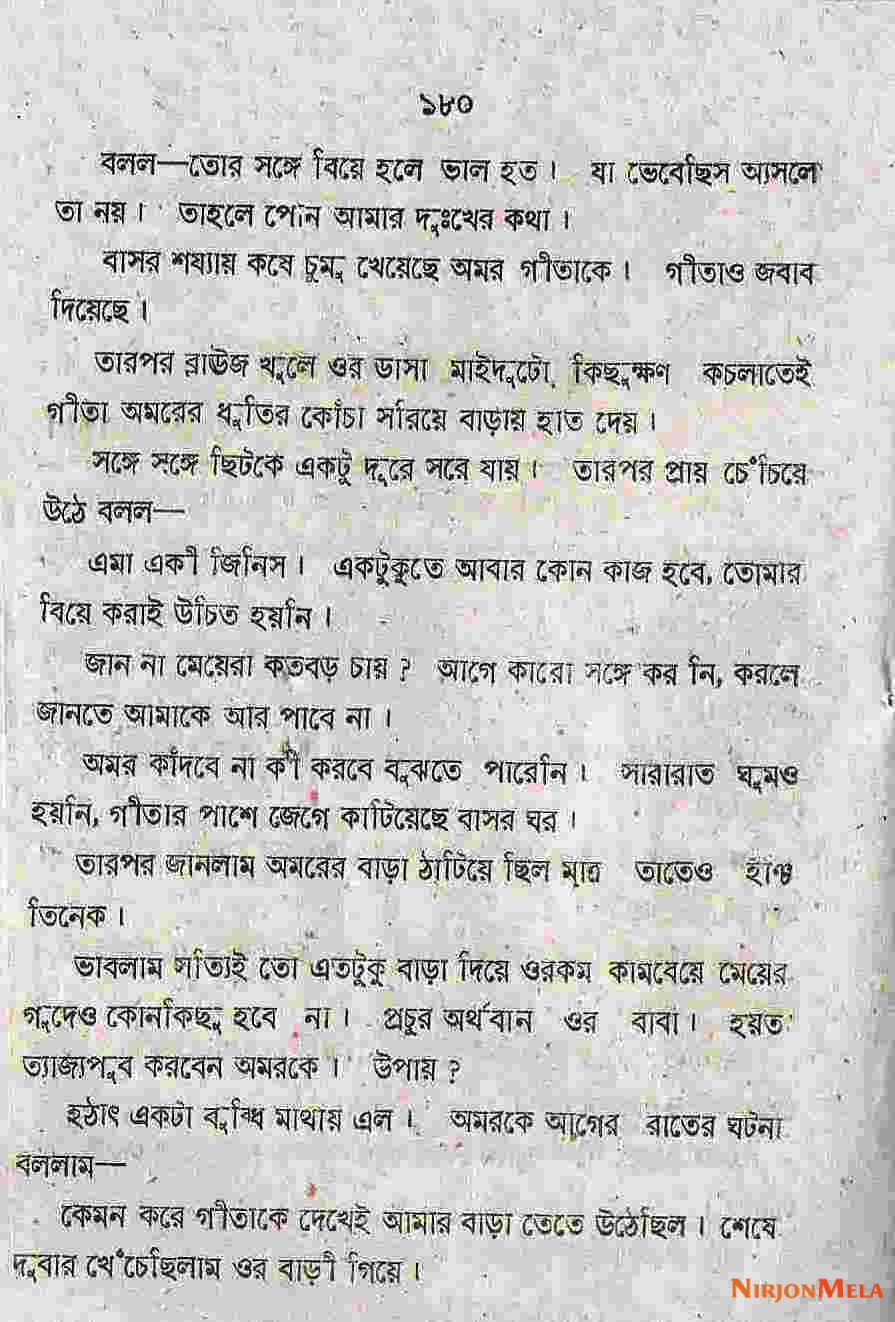 ১৮০
বলল—তোর সঙ্গে বিয়ে হলে ভাল হত। যা ভেবেছিস আসলে
তা নয়। তাহলে শোন আমার দুঃখের কথা।
বাসর শয্যায় কষে চুমু খেয়েছে অমর গীতাকে। গীতাও জবাব
দিয়েছে।
তারপর ব্লাউজ খুলে ওর ডাসা মাইদুটো কিছুক্ষণ কচলাতেই
গীতা অমরের ধুতির কোঁচা সরিয়ে বাড়ায় হাত দেয়।
সঙ্গে সঙ্গে ছিটকে একটু দূরে সরে যায়। তারপর প্রায় চেঁচিয়ে
উঠে বলল—
এমা একী জিনিস। একটুকুতে আবার কোন কাজ হবে, তোমার
বিয়ে করাই উচিত হয়নি।
জান না মেয়েরা কতবড় চায়? আগে কারো সঙ্গে কর নি, করলে
জানতে আমাকে আর পাবে না।
অমর কাঁদবে না কী করবে বুঝতে পারেনি। সারারাত ঘুমও
হয়নি, গীতার পাশে জেগে কাটিয়েছে বাসর ঘর।
তারপর জানলাম অমরের বাড়া ঠাটিয়ে ছিল মাত্র তাতেও ইঞ্চি
তিনেক।
ভাবলাম সত্যিই তো এতটুকু বাড়া দিয়ে ওরকম কামবেয়ে মেয়ের
গুদেও কোনকিছু হবে না। প্রচুর অর্থবান ওর বাবা। হয়ত
ত্যাজ্যপুত্র করবেন অমরকে। উপায়?
হঠাৎ একটা বুদ্ধি মাথায় এল। অমরকে আগের রাতের ঘটনা
বললাম—
কেমন করে গীতাকে দেখেই আমার বাড়া তেতে উঠেছিল। শেষে
দুবার খেঁচেছিলাম ওর বাড়ী গিয়ে।
NIRJONMELA